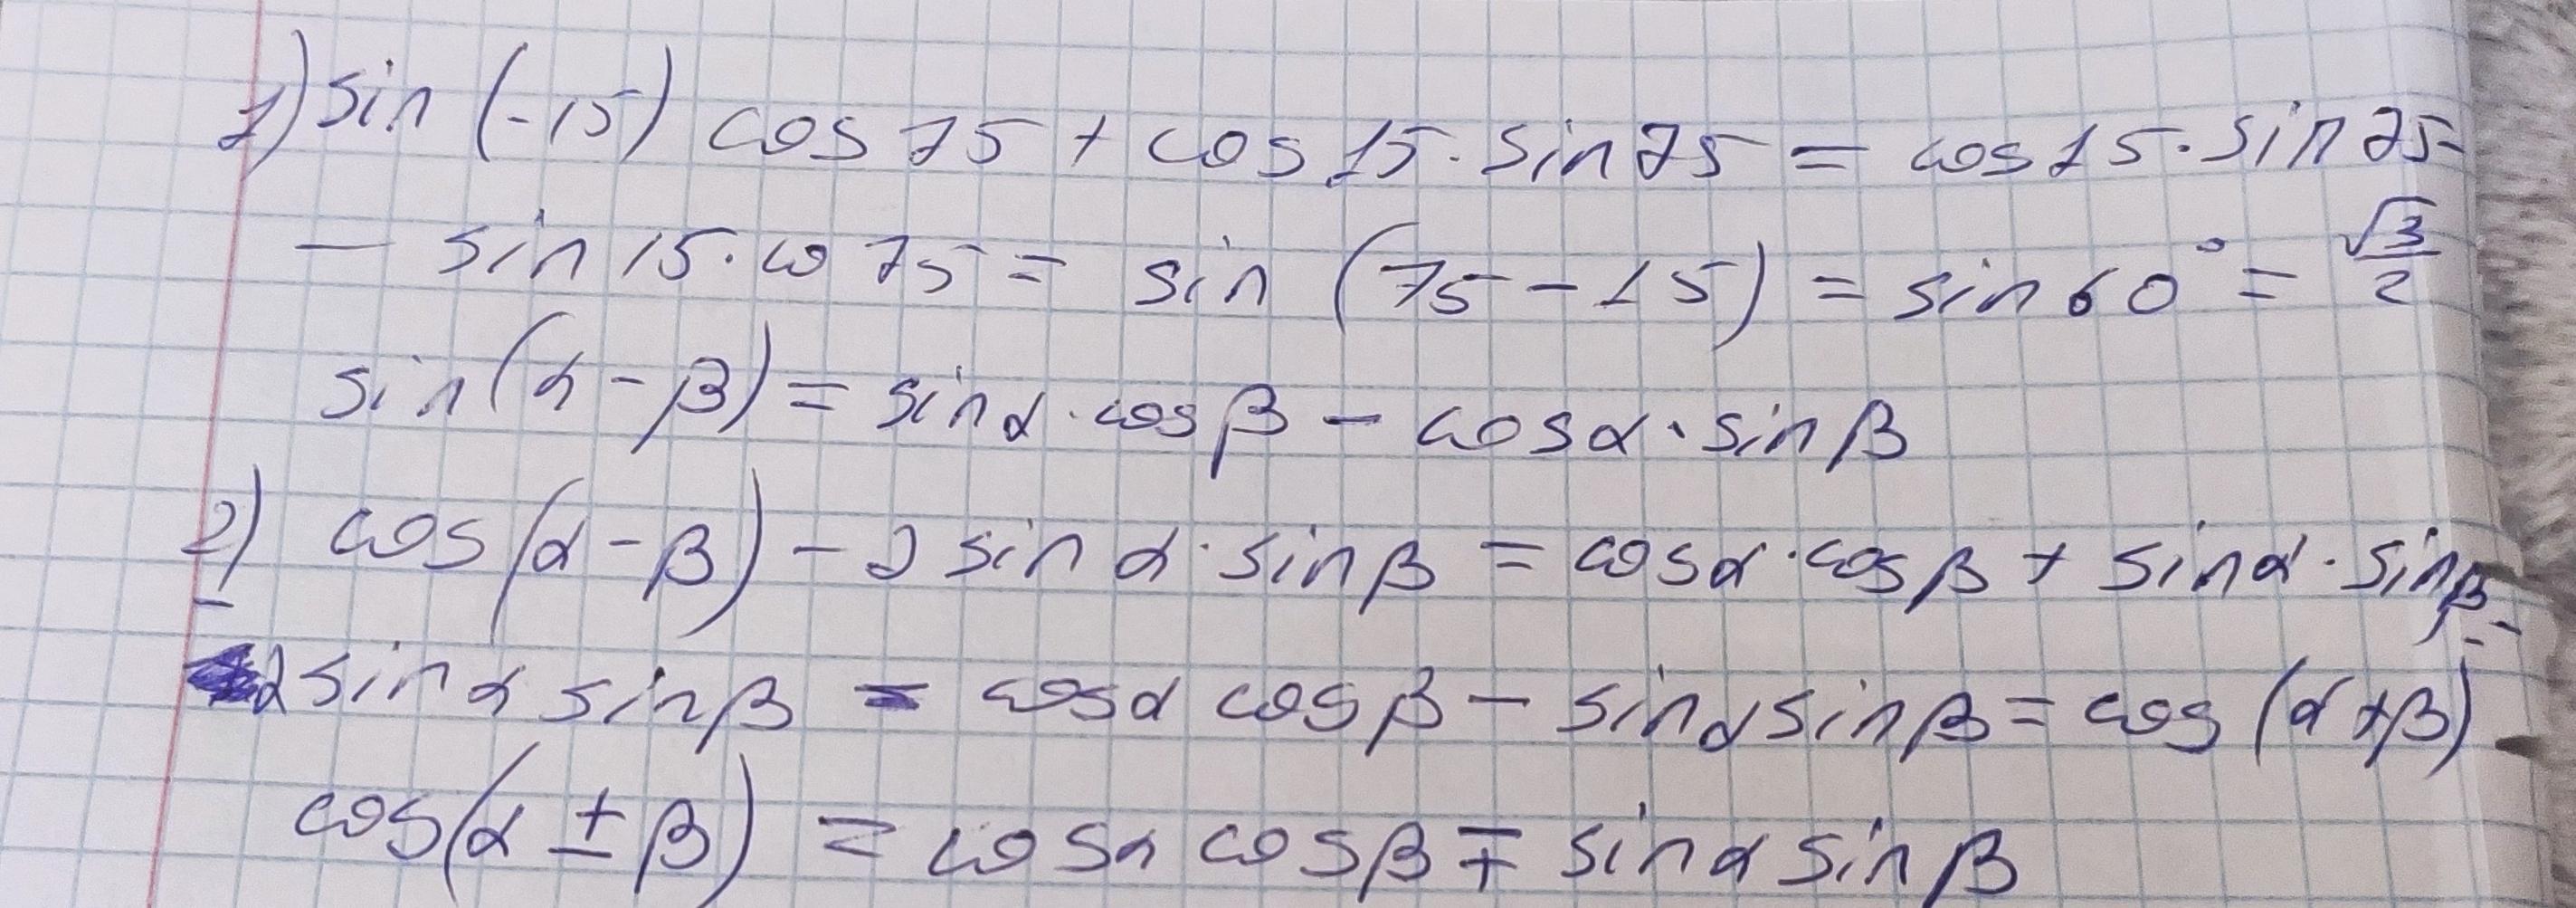 1) sin (-15) cos 75 + cos 15 · sin 75 = cos 15 · sin 75 -
- sin 15 · co 75 = sin (75 - 15) = sin 60° = √3/2
sin(α - β) = sin α · cos β - cos α · sin β
2) cos(α - β) - 2 sin α · sin β = cos α · cos β + sin α · sin β -
2 sin α sin β = cos α cos β - sin α sin β = cos (α + β)
cos(α ± β) = cos α cos β ∓ sin α sin β